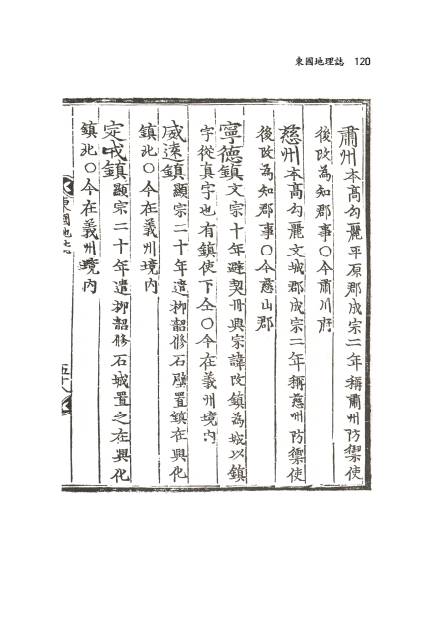 東國地理誌 120
肅州本高勾麗平原郡成宗二年稱肅州防禦使
後改為知郡事○今肅川府
慈州本高勾麗文城郡成宗二年稱慈州防禦使
後改為知郡事○今慈山郡
寧德鎮文宗十年避契丹興宗諱改鎮為城以鎮
字從真字也有鎮使下仝○今在義州境內
威遠鎮顯宗二十年遣柳韶修石壁置鎮在興化
鎮北○今在義州境內
定戎鎮顯宗二十年遣柳韶修石城置之在興化
鎮北○今在義州境內
東國地誌
五十八